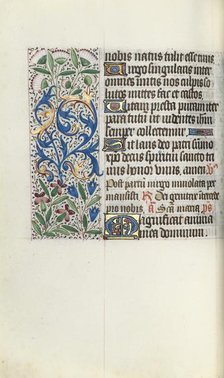 nobis natus tulit esse tuus
Virgo singularis inter
omnes mitis nos culpis so
lutos mites fac et castos
Vitam presta puram iter
para tutum ut videntes ihm
semper colletemur
Sit laus deo patri summo
xpo decus spiritui sancto tri
bus honor unus amen
Post partum virgo inviolata per
mansisti Dei genitrix
pro nobis a Sca maria ps
Magnificat anima
mea dominum